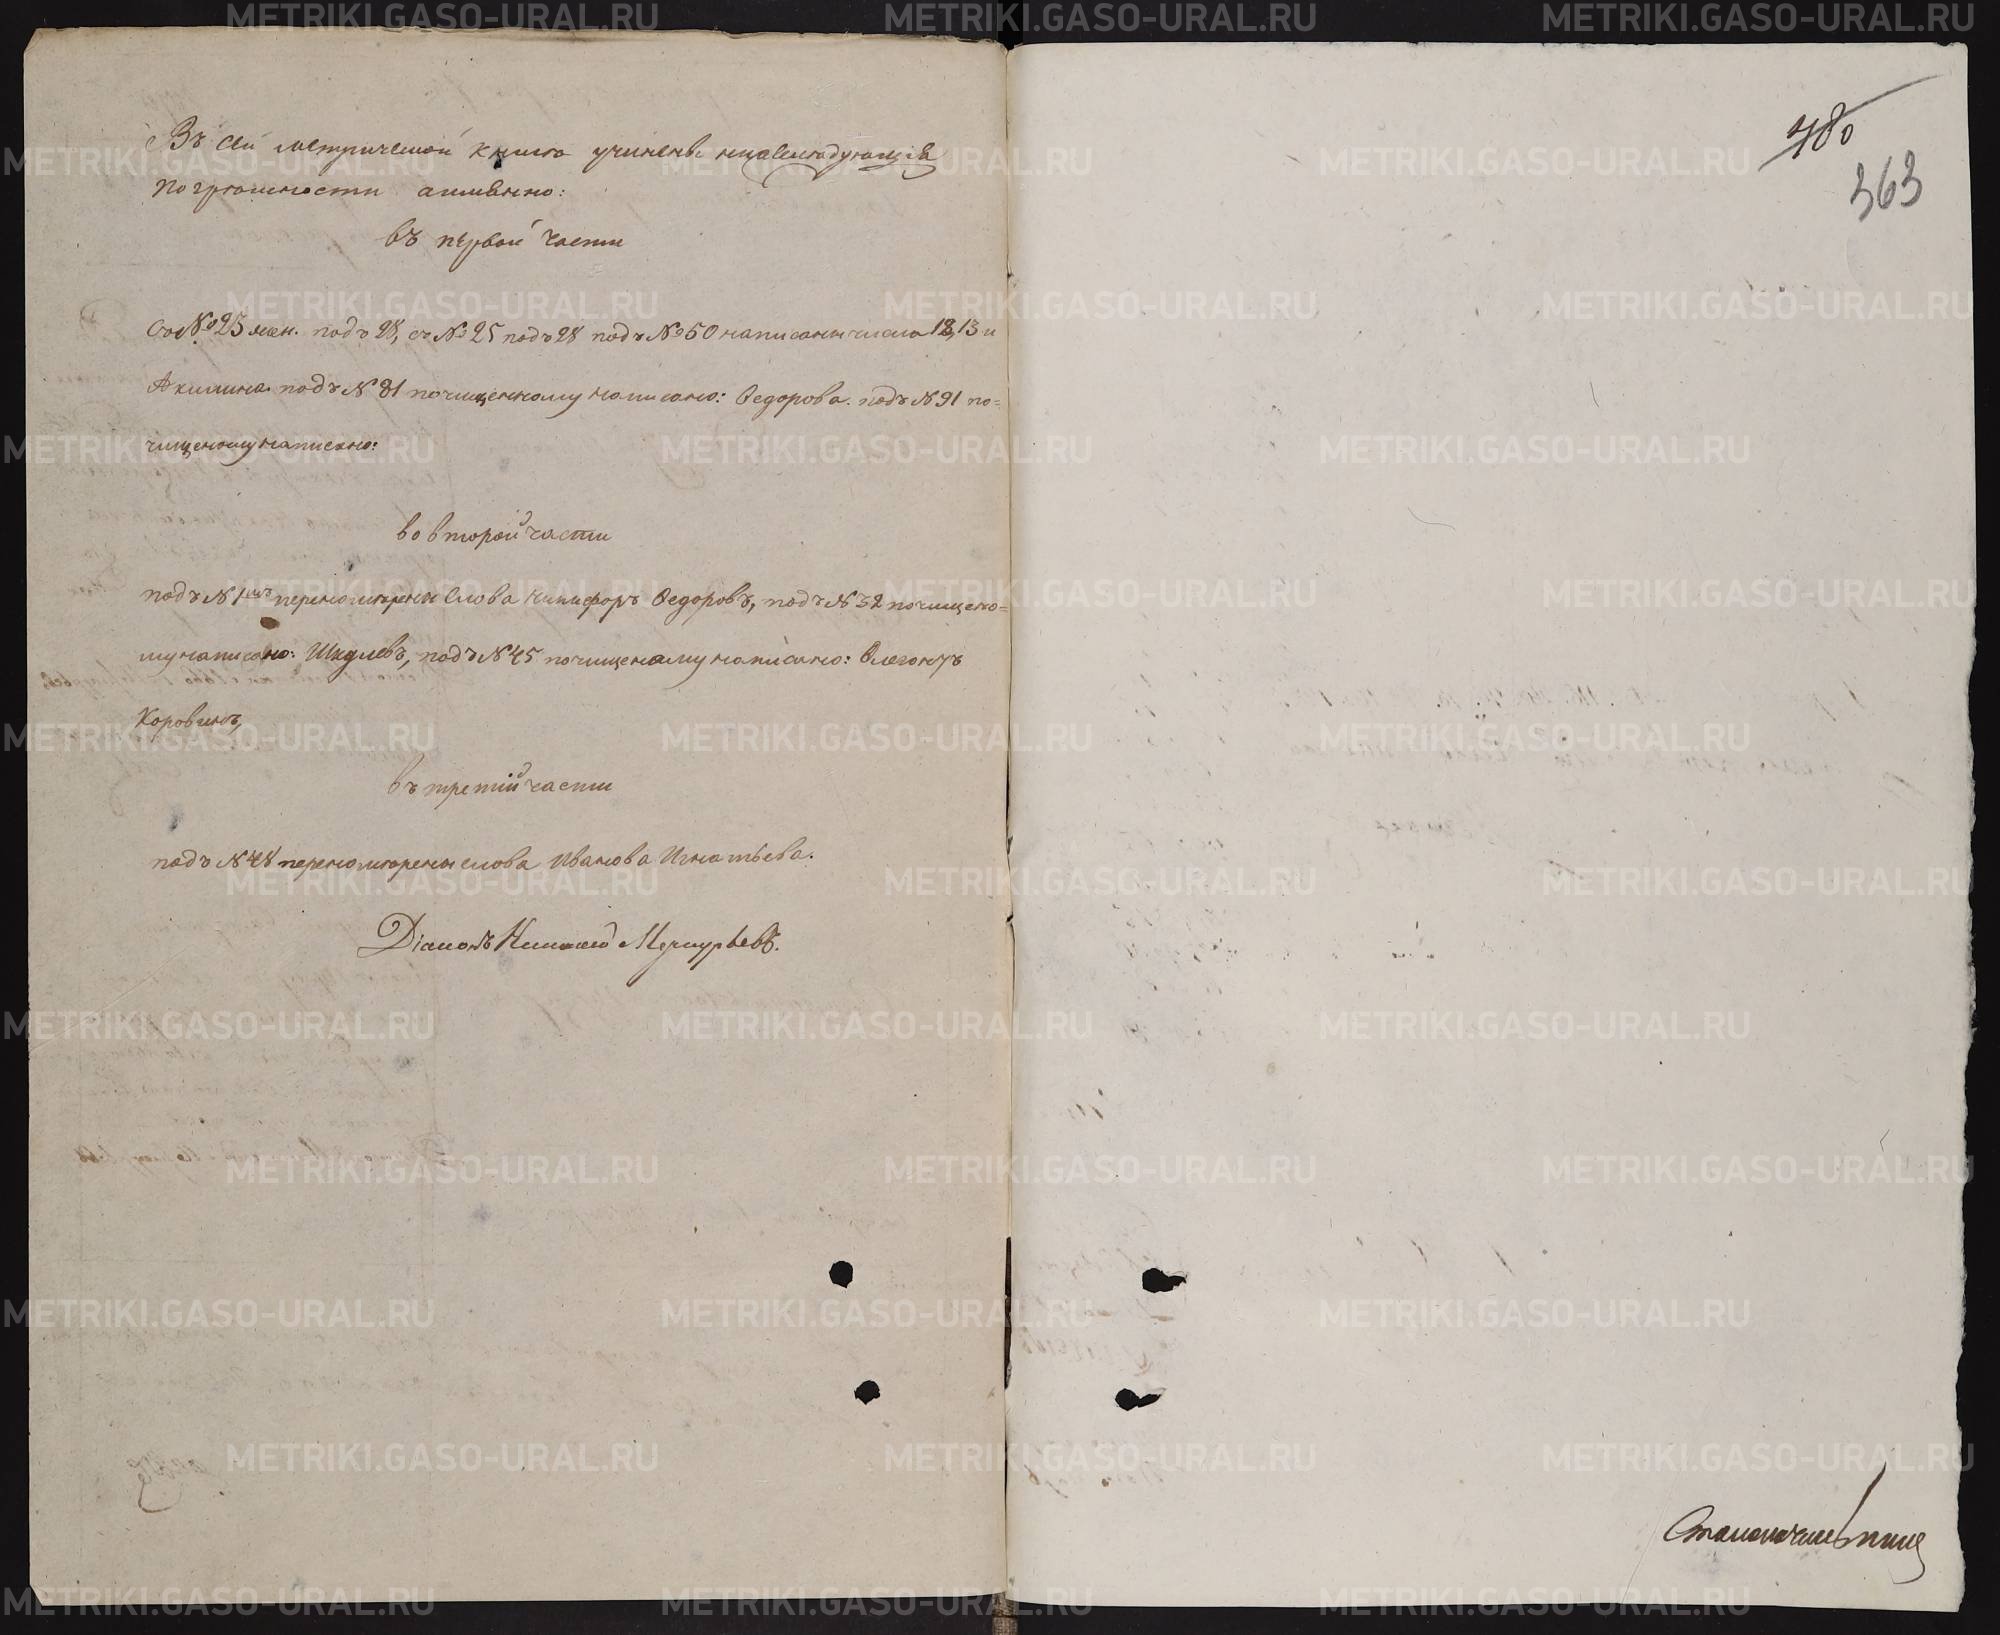 Въ сей метрической книге учинены нижеследующія
погрешности аименно:
въ первой части
Со №23 жен. подъ 28, съ №25 подъ 28 подъ №50 написаны числа 12, 13 и
Акилина подъ № 81 почищенному написано: Ѳедорова. подъ №91 по=
чищеному написано:
во второй части
подъ №1мъ переномерены слова Никифоръ Ѳедоровъ, подъ №32 почищено=
му написано: подъ №45 почищеному написано:
Коровинъ,
въ третій части
подъ №48 переномерены слова Иванова Игнатьева.
Діаконъ Николай Меркурьевъ.
480
363
METRIKI.GASO-URAL.RU